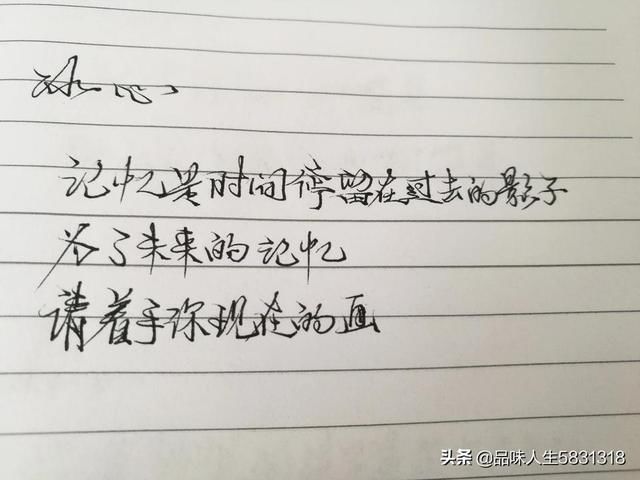 冰心
记忆是时间停留在过去的影子
为了未来的记忆
请着手你现在的画
头条 @品味人生5831318